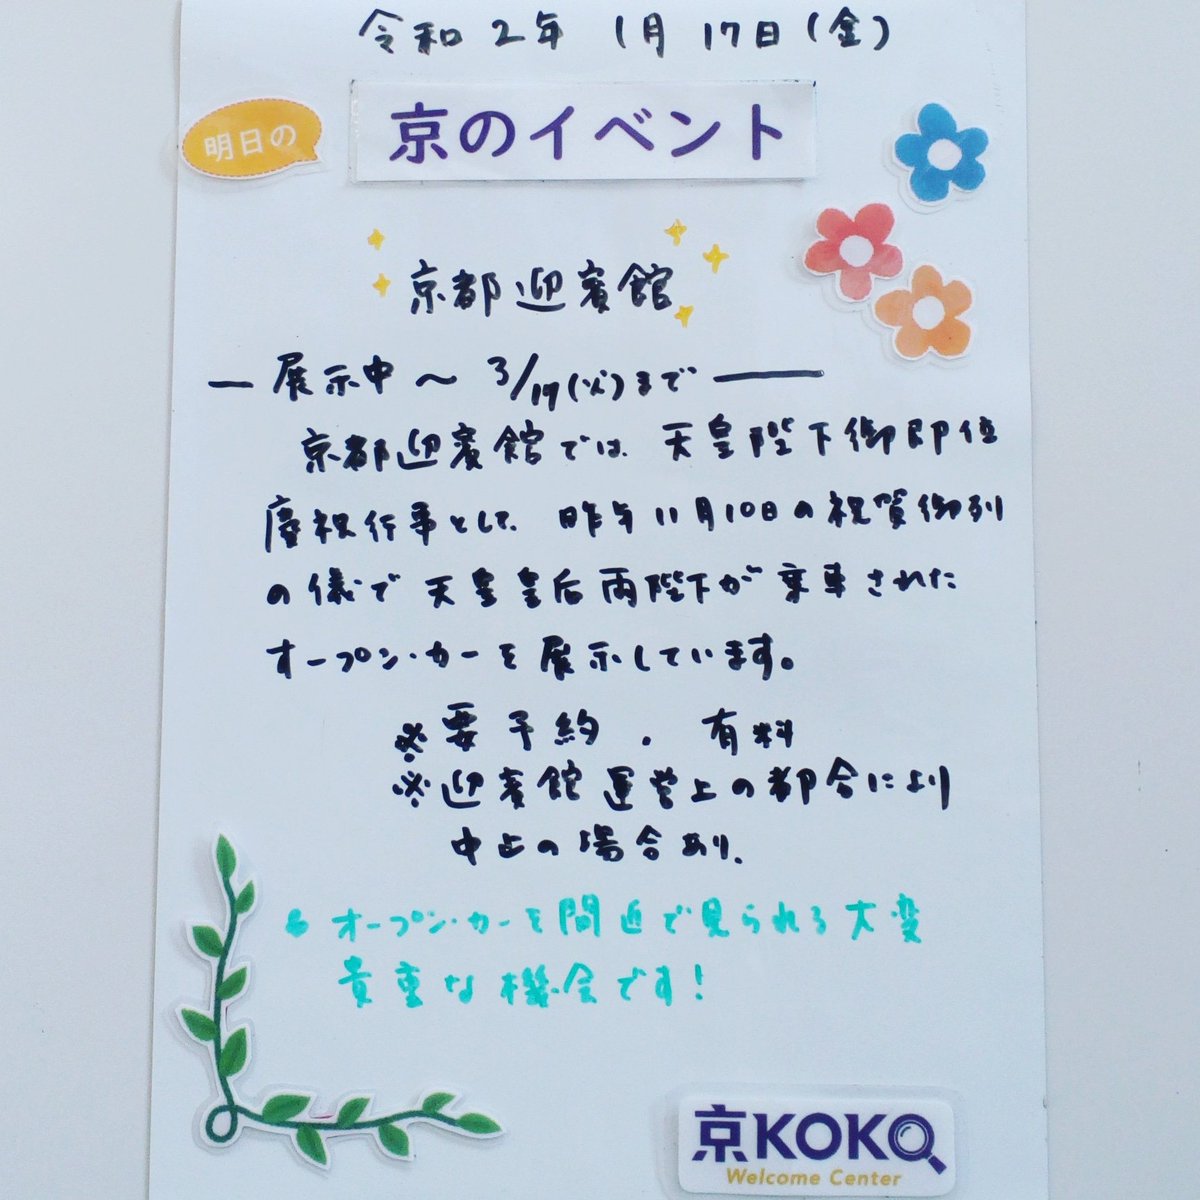 令和2年 1月17日(金)
明日の
京のイベント
京都迎賓館
ー展示中〜3/17(火)までー
京都迎賓館では、天皇陛下御即位
慶祝行事として、昨年11月10日の祝賀御列
の儀で天皇皇后両陛下が乗車された
オープン・カーを展示しています。
※要予約.有料
※迎賓館運営上の都合により
中止の場合あり.
オープン・カーを間近で見られる大変
貴重な機会です!
京KOKO
Welcome Center